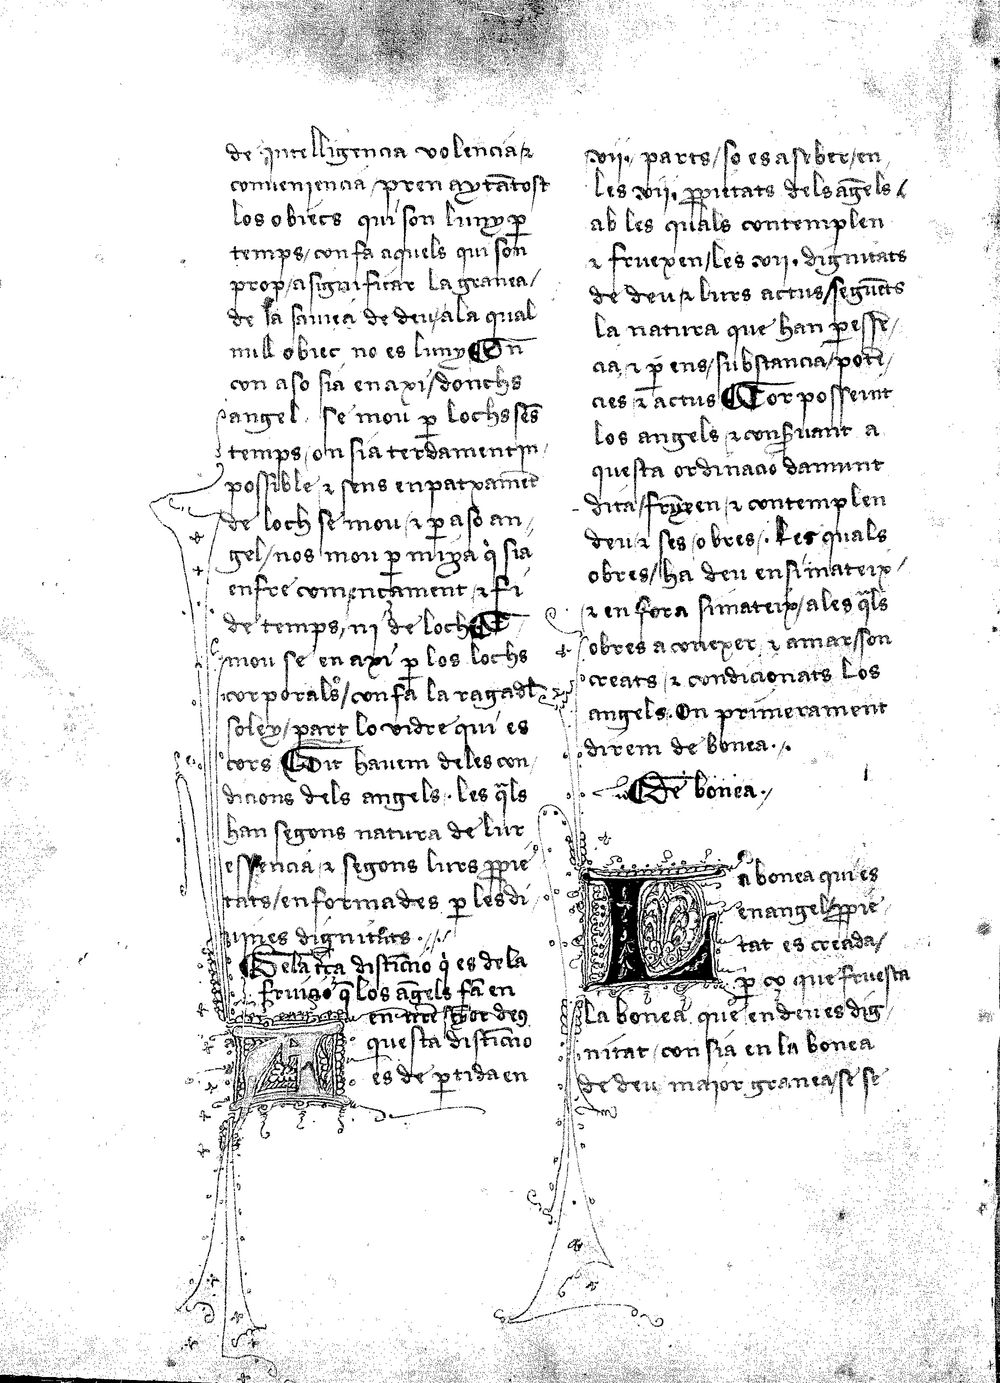 de intelligencia volencia ⁊
conueniencia pren aytātost
los obiects qui son luny p̱
temps / con fa aquels qui son
prop / a significar la granea /
de la sauiea de deu / a la qual
null obiec no es luny On
con aso sia en axi / donchs
angel se mou p̱ lochs sēs
temps / on sia terdament im /
possible ⁊ sens enpatxamēt
de loch se mou / ⁊ p̱ aso an /
gel / nos mou p̱ mija q̇ sia
enfre començament ⁊ fi
de temps, ni de loch E
mou se en axi p̱ los lochs
corporals / con fa la raga dl
soley / part lo vidre qui es
cors Dit hauem de les con /
dicions dels angels . les q̄ls
han segons natura de lur
essencia ⁊ segons lurs ꝓpie
tats / enformades p̱ les di /
uines dignitats . //
De la t̄ça distīcio q̇ es de la
fruicio q̄ los āgels fā en
en n̄re s̄yor deus
questa distīcio
es de p̱tida en
.vii. parts / so es a seber / en
les .vii. ꝓpietats dels āgels /
ab les quals contemplen
⁊ fruexen / les .vii. dignitats
de deu / ⁊ lurs actus / seguēts
la natura que han p̱ essē /
cia ⁊ p̱ ens / substancia / potē /
cies ⁊ actus Cor posseint
los angels ⁊ conſuant a
questa ordinacio damunt
dita / fruyen ⁊ contemplen
deu ⁊ ses obres . Les quals
obres / ha deu en si mateix /
⁊ en fora si mateix / a les q̄ls
obres a conexer ⁊ amar son
creats ⁊ condicionats los
angels . On primerament
direm de bonea . /.
De bonea . /
La bonea qui es
en angel / ꝓpie
tat es creada /
p̱ ço que fruesca
la bonea que en deu es dig /
nitat / con sia en la bonea
de deu maior granea / se se